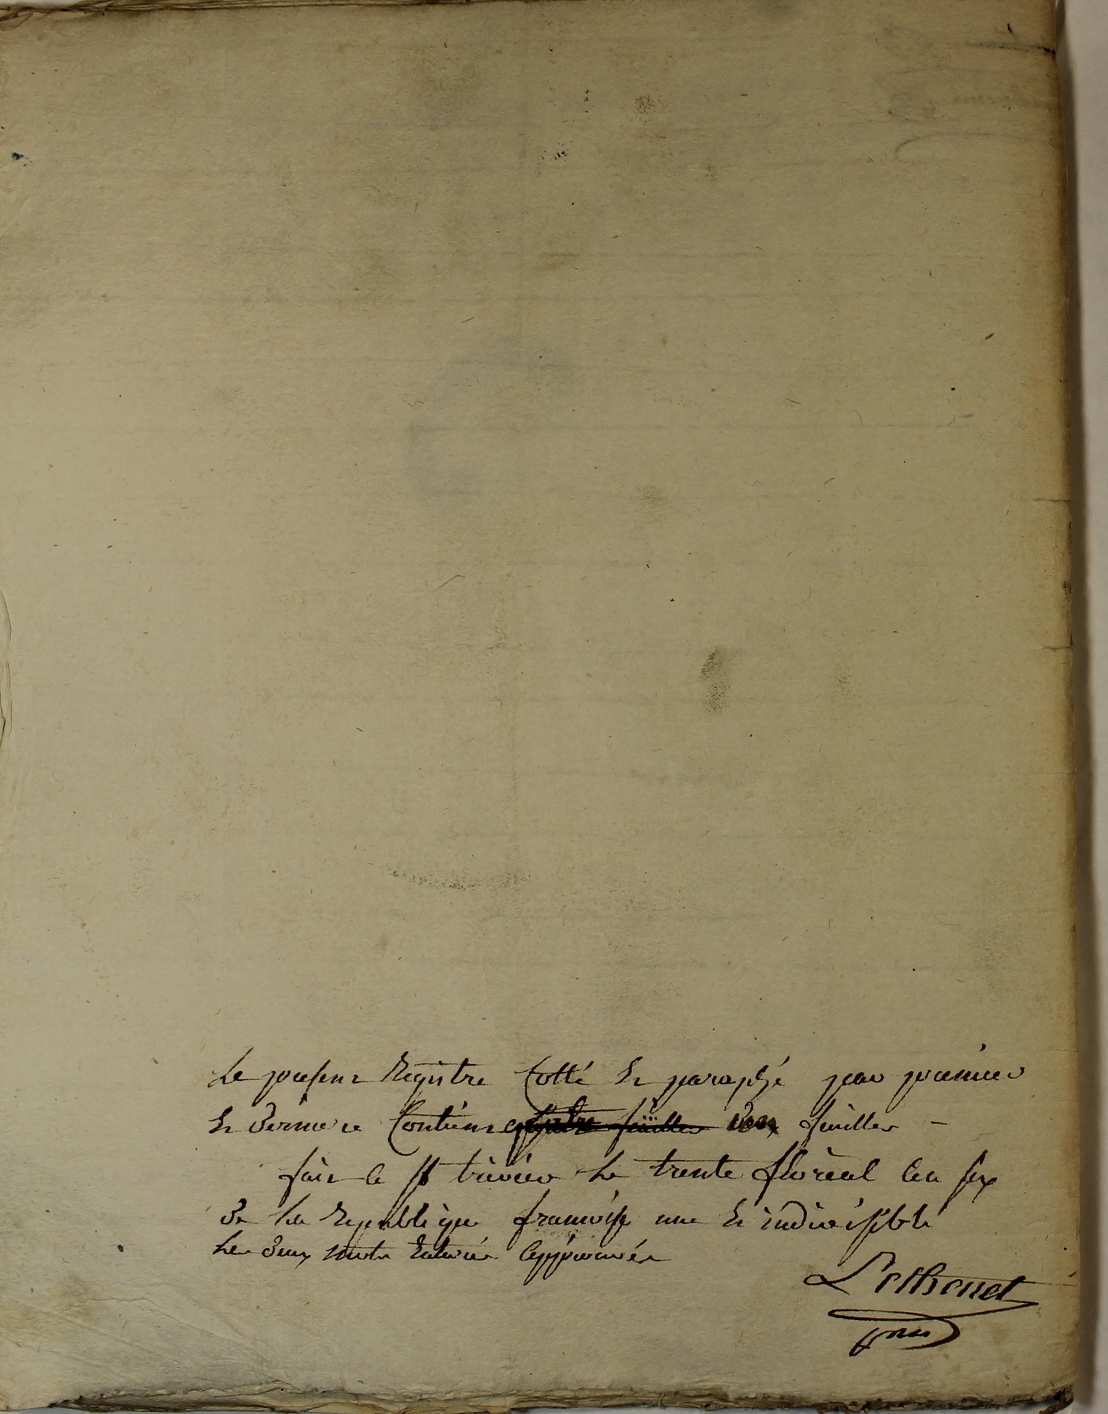 Le present Registre Cotté et paraphé par premier
et dernier Contient quatre feuilles deux feuilles -
fait a St trivier le trente floreal an six
de la Republique francoise une et indivisible
les deux mots raturés approuvés